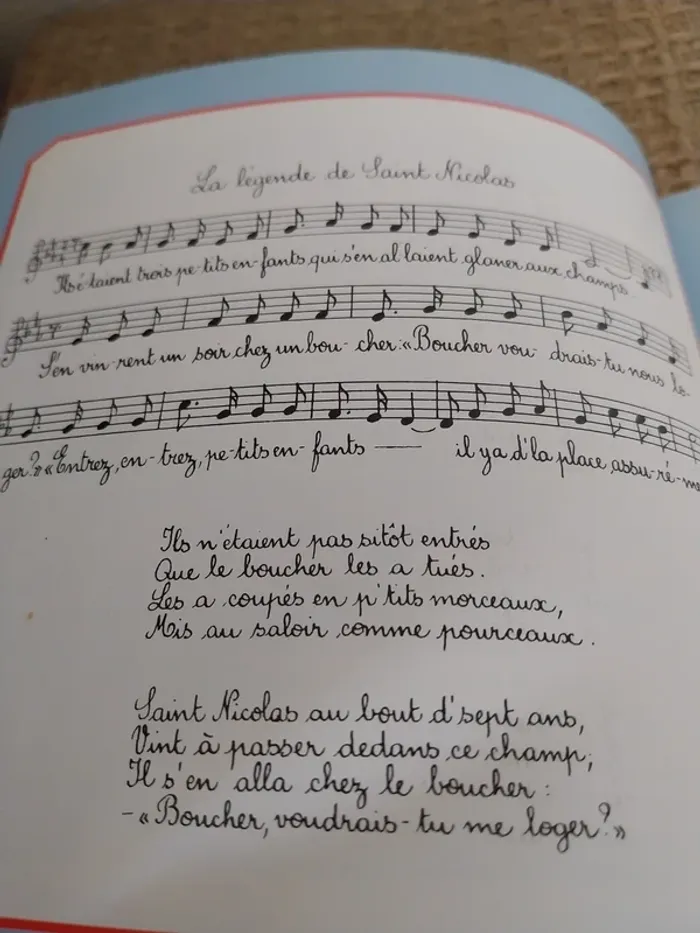 La légende de Saint Nicolas
Ils é-taient trois pe-tits en-fants qui s'en al laient glaner aux champs
S'en vin-rent un soir chez un bou-cher: «Boucher vou-drais-tu nous lo-
ger?» «Entrez, en-trez, pe-tits en-fants — il y a d'la place assu-ré-me
Ils n'étaient pas sitôt entrés
Que le boucher les a tués.
Les a coupés en p'tits morceaux,
Mis au saloir comme pourceaux.
Saint Nicolas au bout d'sept ans,
Vint à passer dedans ce champ;
Il s'en alla chez le boucher:
-«Boucher, voudrais-tu me loger?»